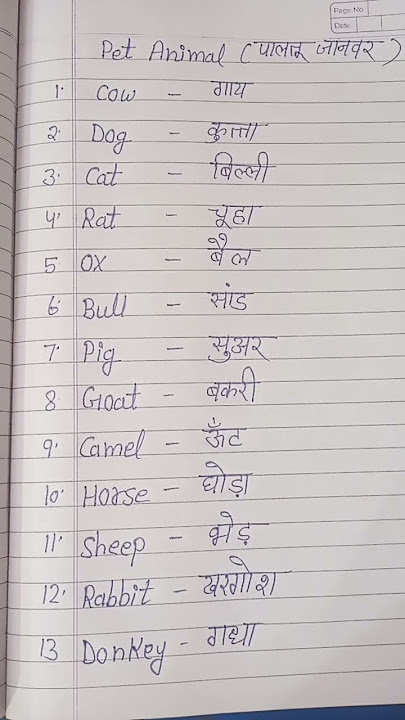 Page No
Date
Pet Animal (पालतू जानवर)
1. Cow - गाय
2. Dog - कुत्ता
3. Cat - बिल्ली
4. Rat - चूहा
5 OX - बैल
6. Bull - सांड
7. Pig - सुअर
8 Goat - बकरी
9. Camel - ऊँट
10. Horse - घोड़ा
11. Sheep - भेड़
12. Rabbit - खरगोश
13 Donkey - गधा